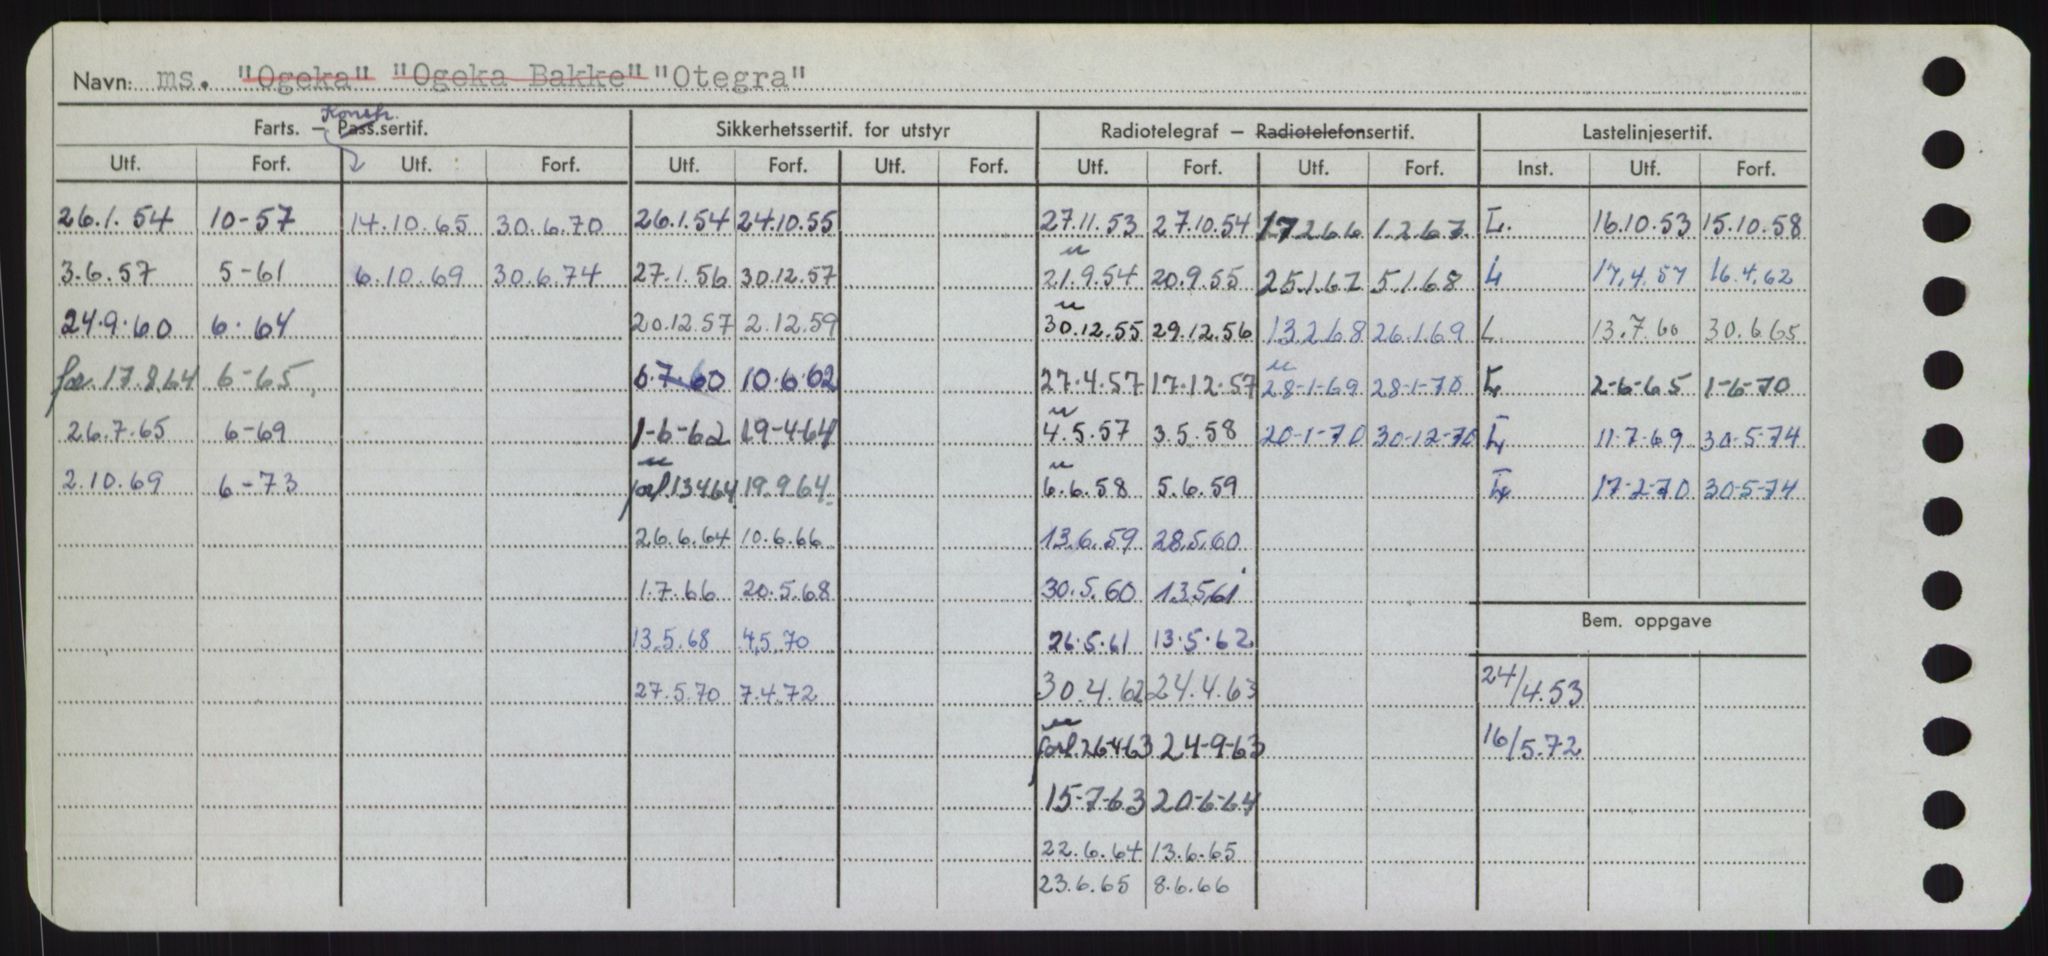 Navn: ms. "Ogeka" "Ogeka Bakke" "Otegra"
Konstr.
Farts. — Pass.sertif. Sikkerhetssertif. for utstyr Radiotelegraf — Radiotelefonsertif. Lastelinjesertif.
Utf. Forf. Utf. Forf. Utf. Forf. Utf. Forf. Utf. Forf. Utf. Forf. Inst. Utf. Forf.
26.1.54 10-57 14.10.65 30.6.70 26.1.54 24.10.55 27.11.53 27.10.54 17.2.66 1.2.67. L. 16.10.53 15.10.58
3.6.57 5-61 6.10.69 30.6.74 27.1.56 30.12.57 21.9.54 20.9.55 25.1.67 5.1.68 L 17.4.57 16.4.62
24.9.60 6.64 20.12.57 2.12.59 30.12.55 29.12.56 13.2.68 26.1.69 L. 13.7.60 30.6.65
for. 17.8.64 6-65 6.7.60 10.6.62 27.4.57 17.12.57 28-1-69 28-1-70 L 2-6-65 1-6-70
26.7.65 6-69 1-6-62 19-4-64 4.5.57 3.5.58 20-1-70 30-12-70 L 11-7-69 30-5-74
2.10.69 6-73 forl 13464 19.9.64. 6.6.58 5.6.59 L 17-2-70 30-5-74
26.6.64 10.6.66 13.6.59 28.5.60
1.7.66 20.5.68 30.5.60 13.5.61
Bem. oppgave
13.5.68 4.5.70 26.5.61 13.5.62
27.5.70 7.4.72 30.4.62 24.4.63 24/4.53
forl. 26-4-63 24-9-63 16/5.72
15-7-63 20-6-64
22.6.64 13.6.65
23.6.65 8.6.66